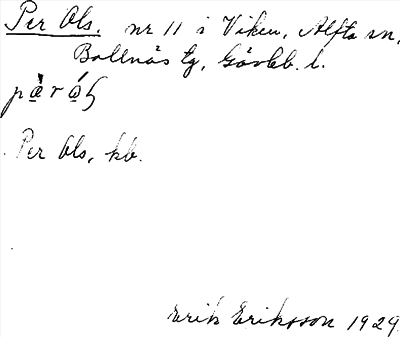 Per Ols. nr 11 i Viken, Alfta sn,
Bollnäs tg, Gävleb. l.
Per Ols, kb.
Erik Eriksson 1929.